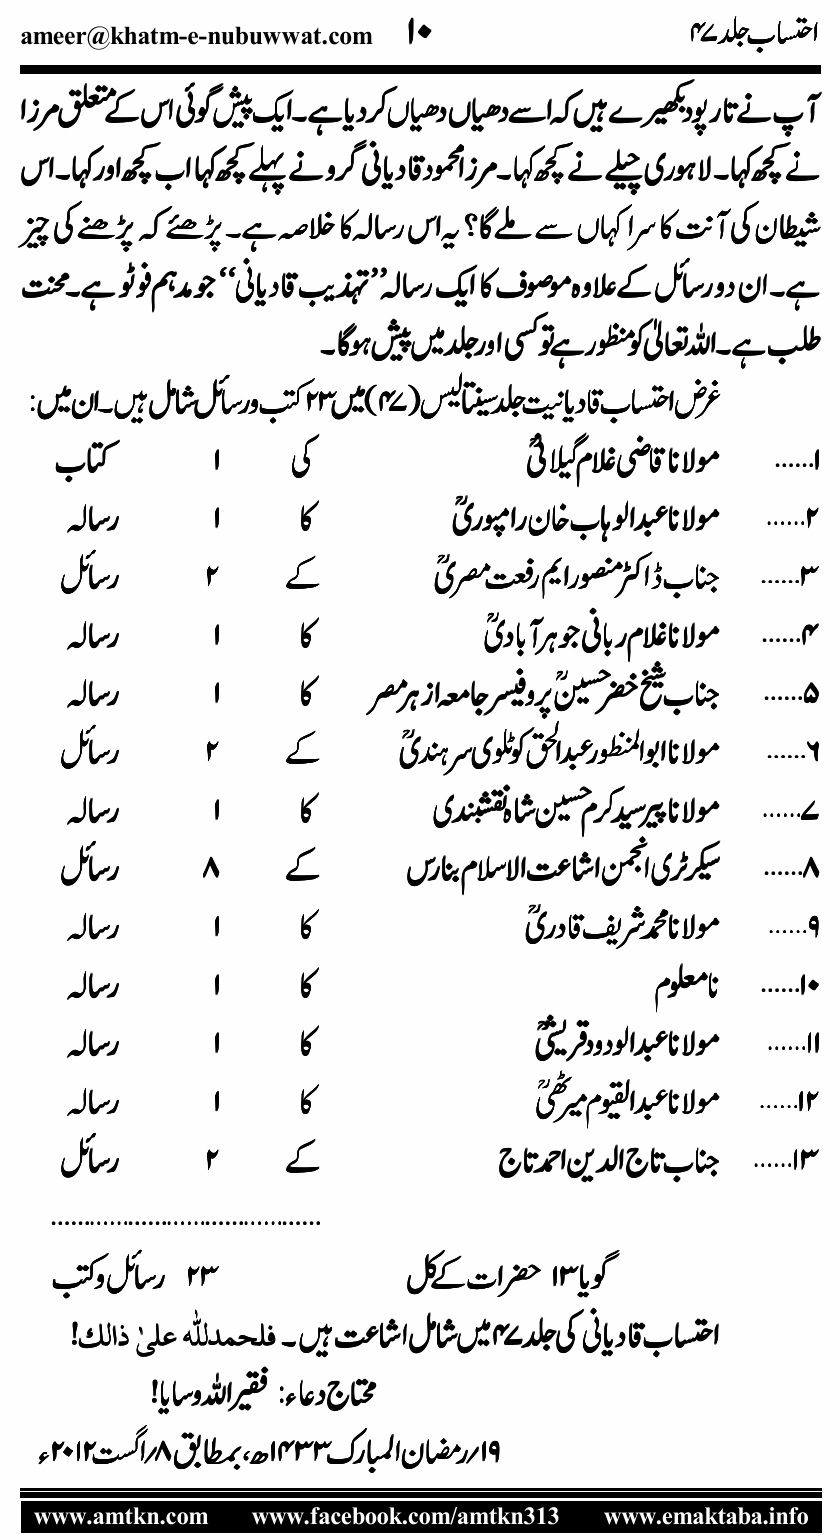 احتساب جلد ۴۷ ۱۰ ameer@khatm-e-nubuwwat.com
آپ نے تار پود بکھیرے ہیں کہ اسے دھیاں دھیاں کر دیا ہے۔ ایک پیش گوئی اس کے متعلق مرزا
نے کچھ کہا۔ لاہوری چیلے نے کچھ کہا۔ مرزا محمود قادیانی گرو نے پہلے کچھ کہا اب کچھ اور کہا۔ اس
شیطان کی آنت کا سرا کہاں سے ملے گا؟ یہ اس رسالہ کا خلاصہ ہے۔ پڑھئے کہ پڑھنے کی چیز
ہے۔ ان دو رسائل کے علاوہ موصوف کا ایک رسالہ ”تہذیب قادیانی“ جو مدہم فوٹو ہے۔ محنت
طلب ہے۔ اللہ تعالیٰ کو منظور ہے تو کسی اور جلد میں پیش ہوگا۔
غرض احتساب قادیانیت جلد سینتالیس (۴۷) میں ۲۳ کتب و رسائل شامل ہیں۔ ان میں:
۱...... مولانا قاضی غلام گیلانیؒ کی ۱ کتاب
۲...... مولانا عبدالوہاب خان رامپوریؒ کا ۱ رسالہ
۳...... جناب ڈاکٹر منصور ایم رفعت مصریؒ کے ۲ رسائل
۴...... مولانا غلام ربانی جوہر آبادیؒ کا ۱ رسالہ
۵...... جناب شیخ خضر حسینؒ پروفیسر جامعہ ازہر مصر کا ۱ رسالہ
۶...... مولانا ابوالمنظور عبدالحق کوٹلوی سرہندیؒ کے ۲ رسائل
۷...... مولانا پیر سید کرم حسین شاہ نقشبندی کا ۱ رسالہ
۸...... سیکرٹری انجمن اشاعت الاسلام بنارس کے ۸ رسائل
۹...... مولانا محمد شریف قادریؒ کا ۱ رسالہ
۱۰...... نامعلوم کا ۱ رسالہ
۱۱...... مولانا عبدالودود قریشیؒ کا ۱ رسالہ
۱۲...... مولانا عبدالقیوم میرٹھیؒ کا ۱ رسالہ
۱۳...... جناب تاج الدین احمد تاج کے ۲ رسائل
..........................................
گویا ۱۳ حضرات کے کل ۲۳ رسائل و کتب
احتساب قادیانی کی جلد ۴۷ میں شامل اشاعت ہیں۔ فلحمدللہ علیٰ ذالك!
محتاج دعاء: فقیر اللہ وسایا!
۱۹؍رمضان المبارک ۱۴۳۳ھ، بمطابق ۸؍اگست ۲۰۱۲ء
www.amtkn.com www.facebook.com/amtkn313 www.emaktaba.info